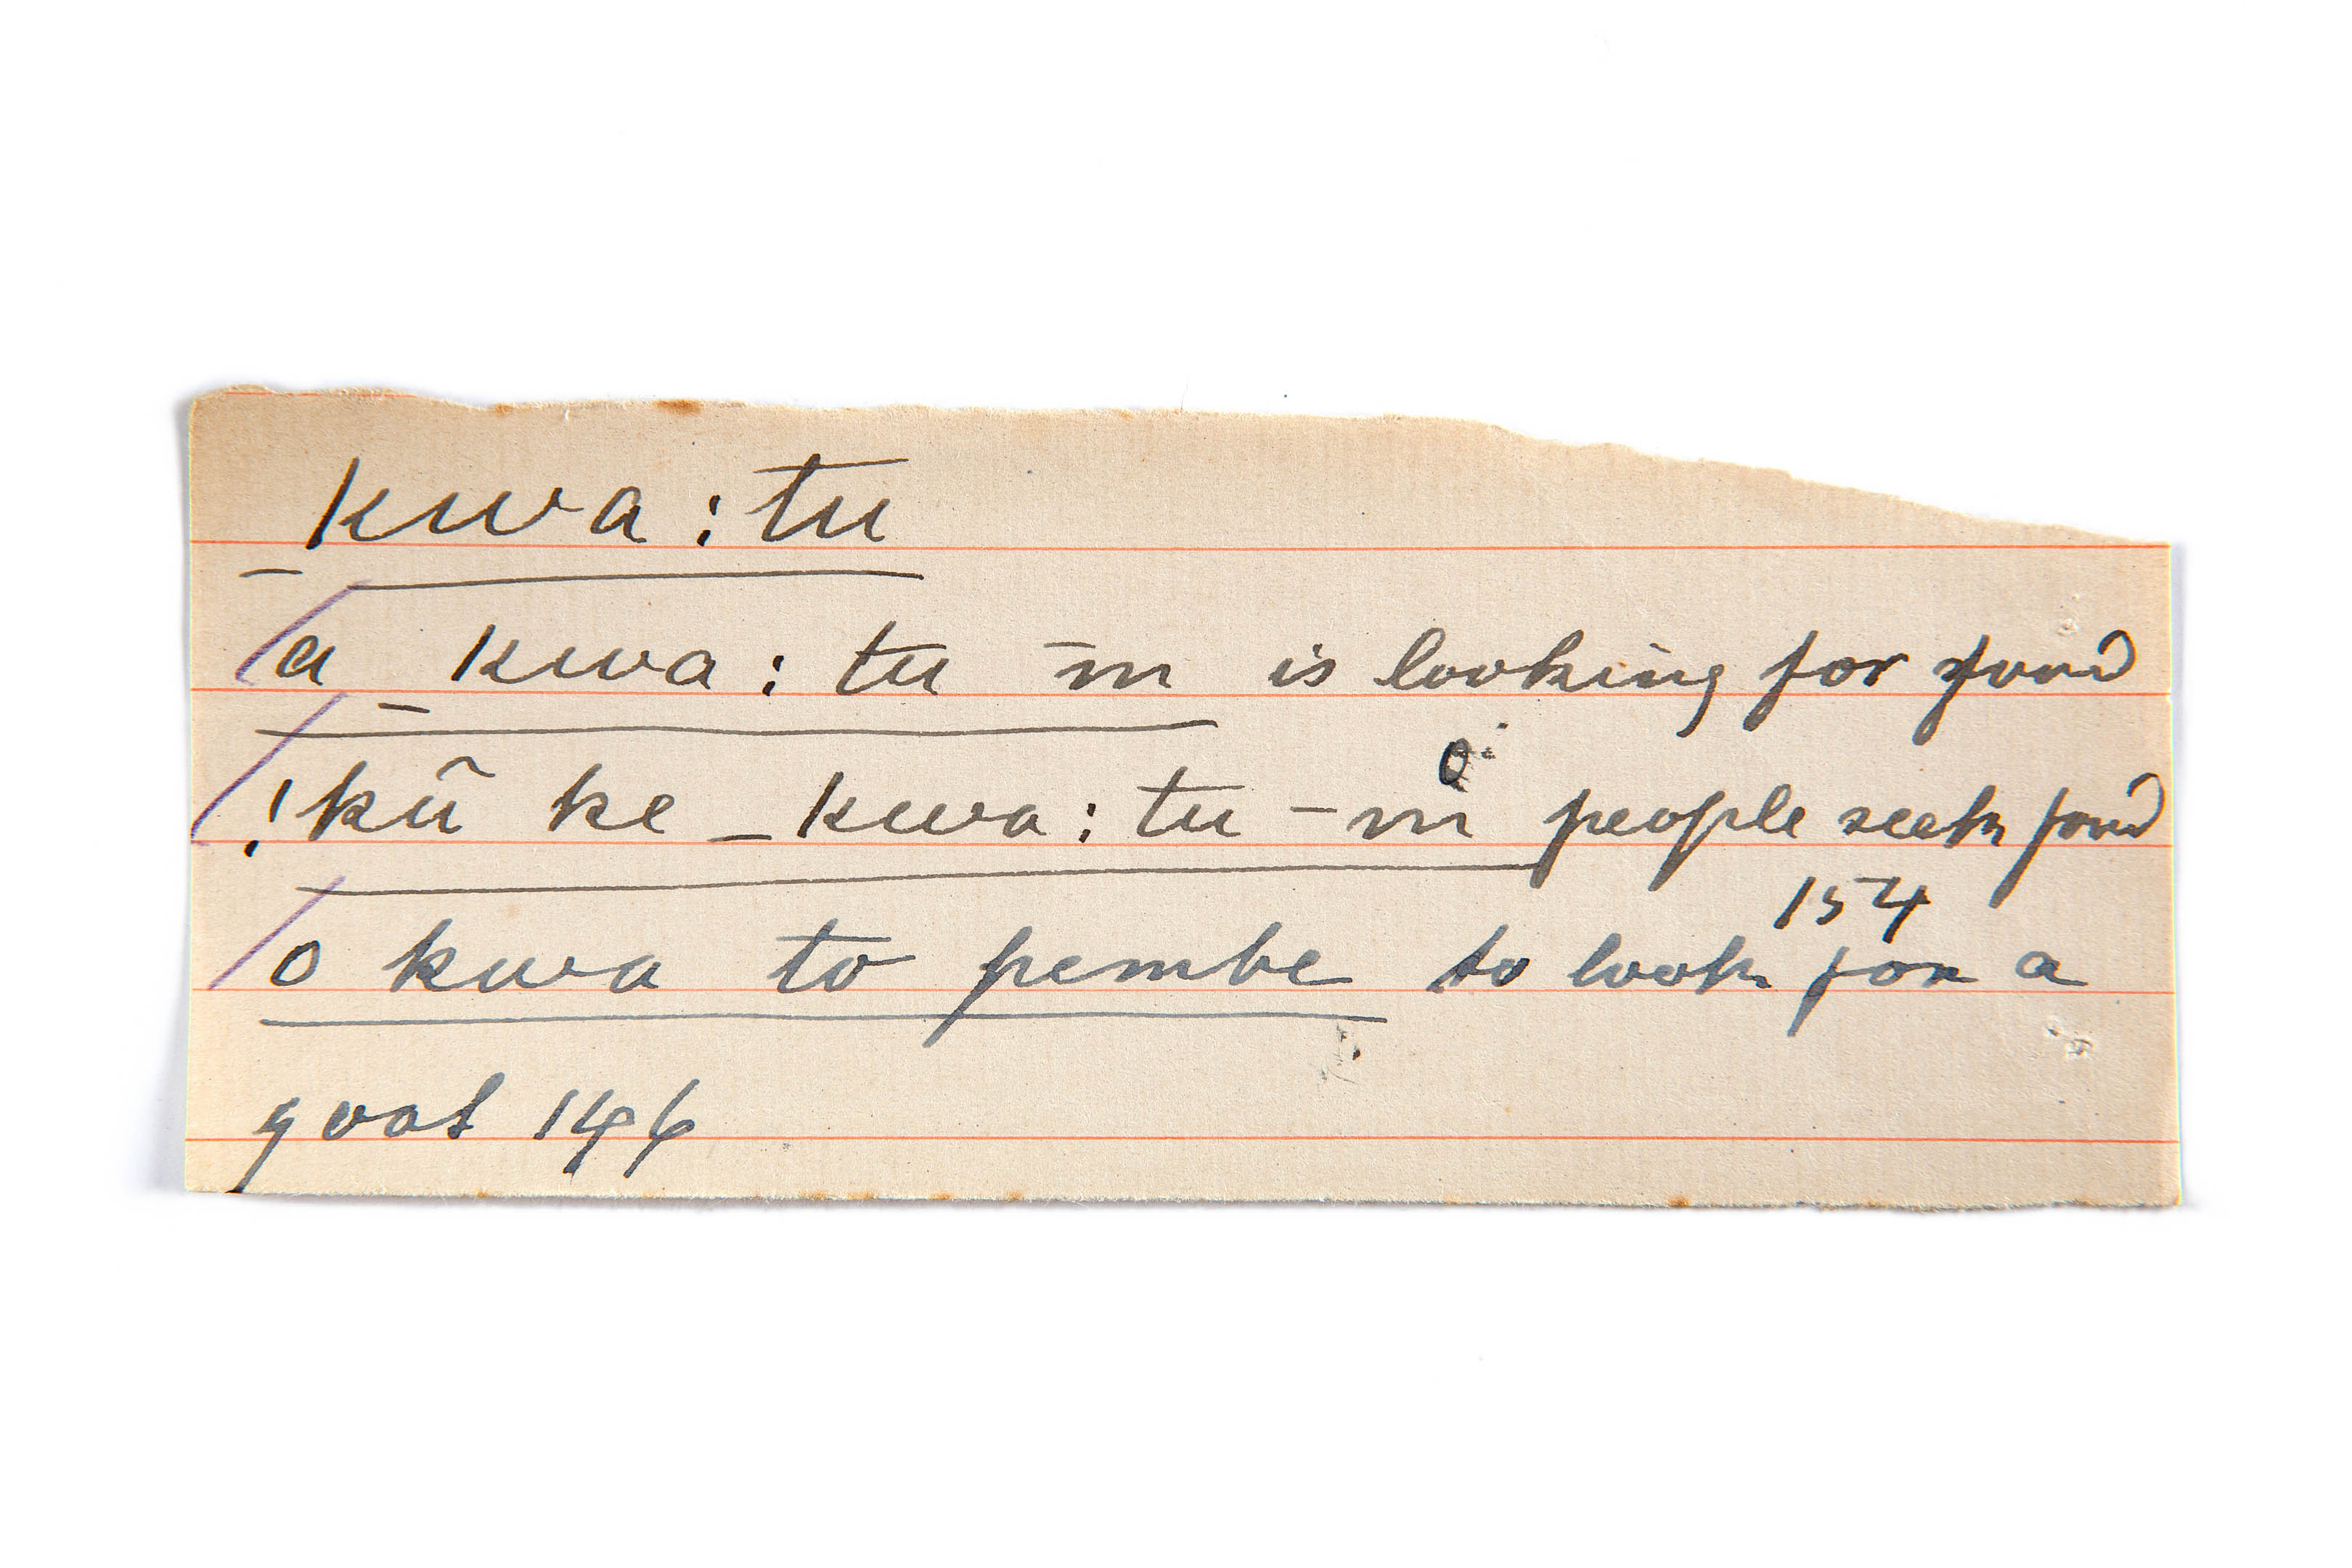 _ kwa : tu
a _ kwa : tu ¯m is looking for food
!kũ ke _ kwa : tu ¯m people seek food
154
o kwa to pembe to look for a
goat 146